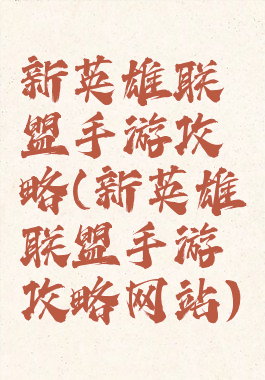 新英雄联
盟手游攻
略(新英雄
联盟手游
攻略网站)